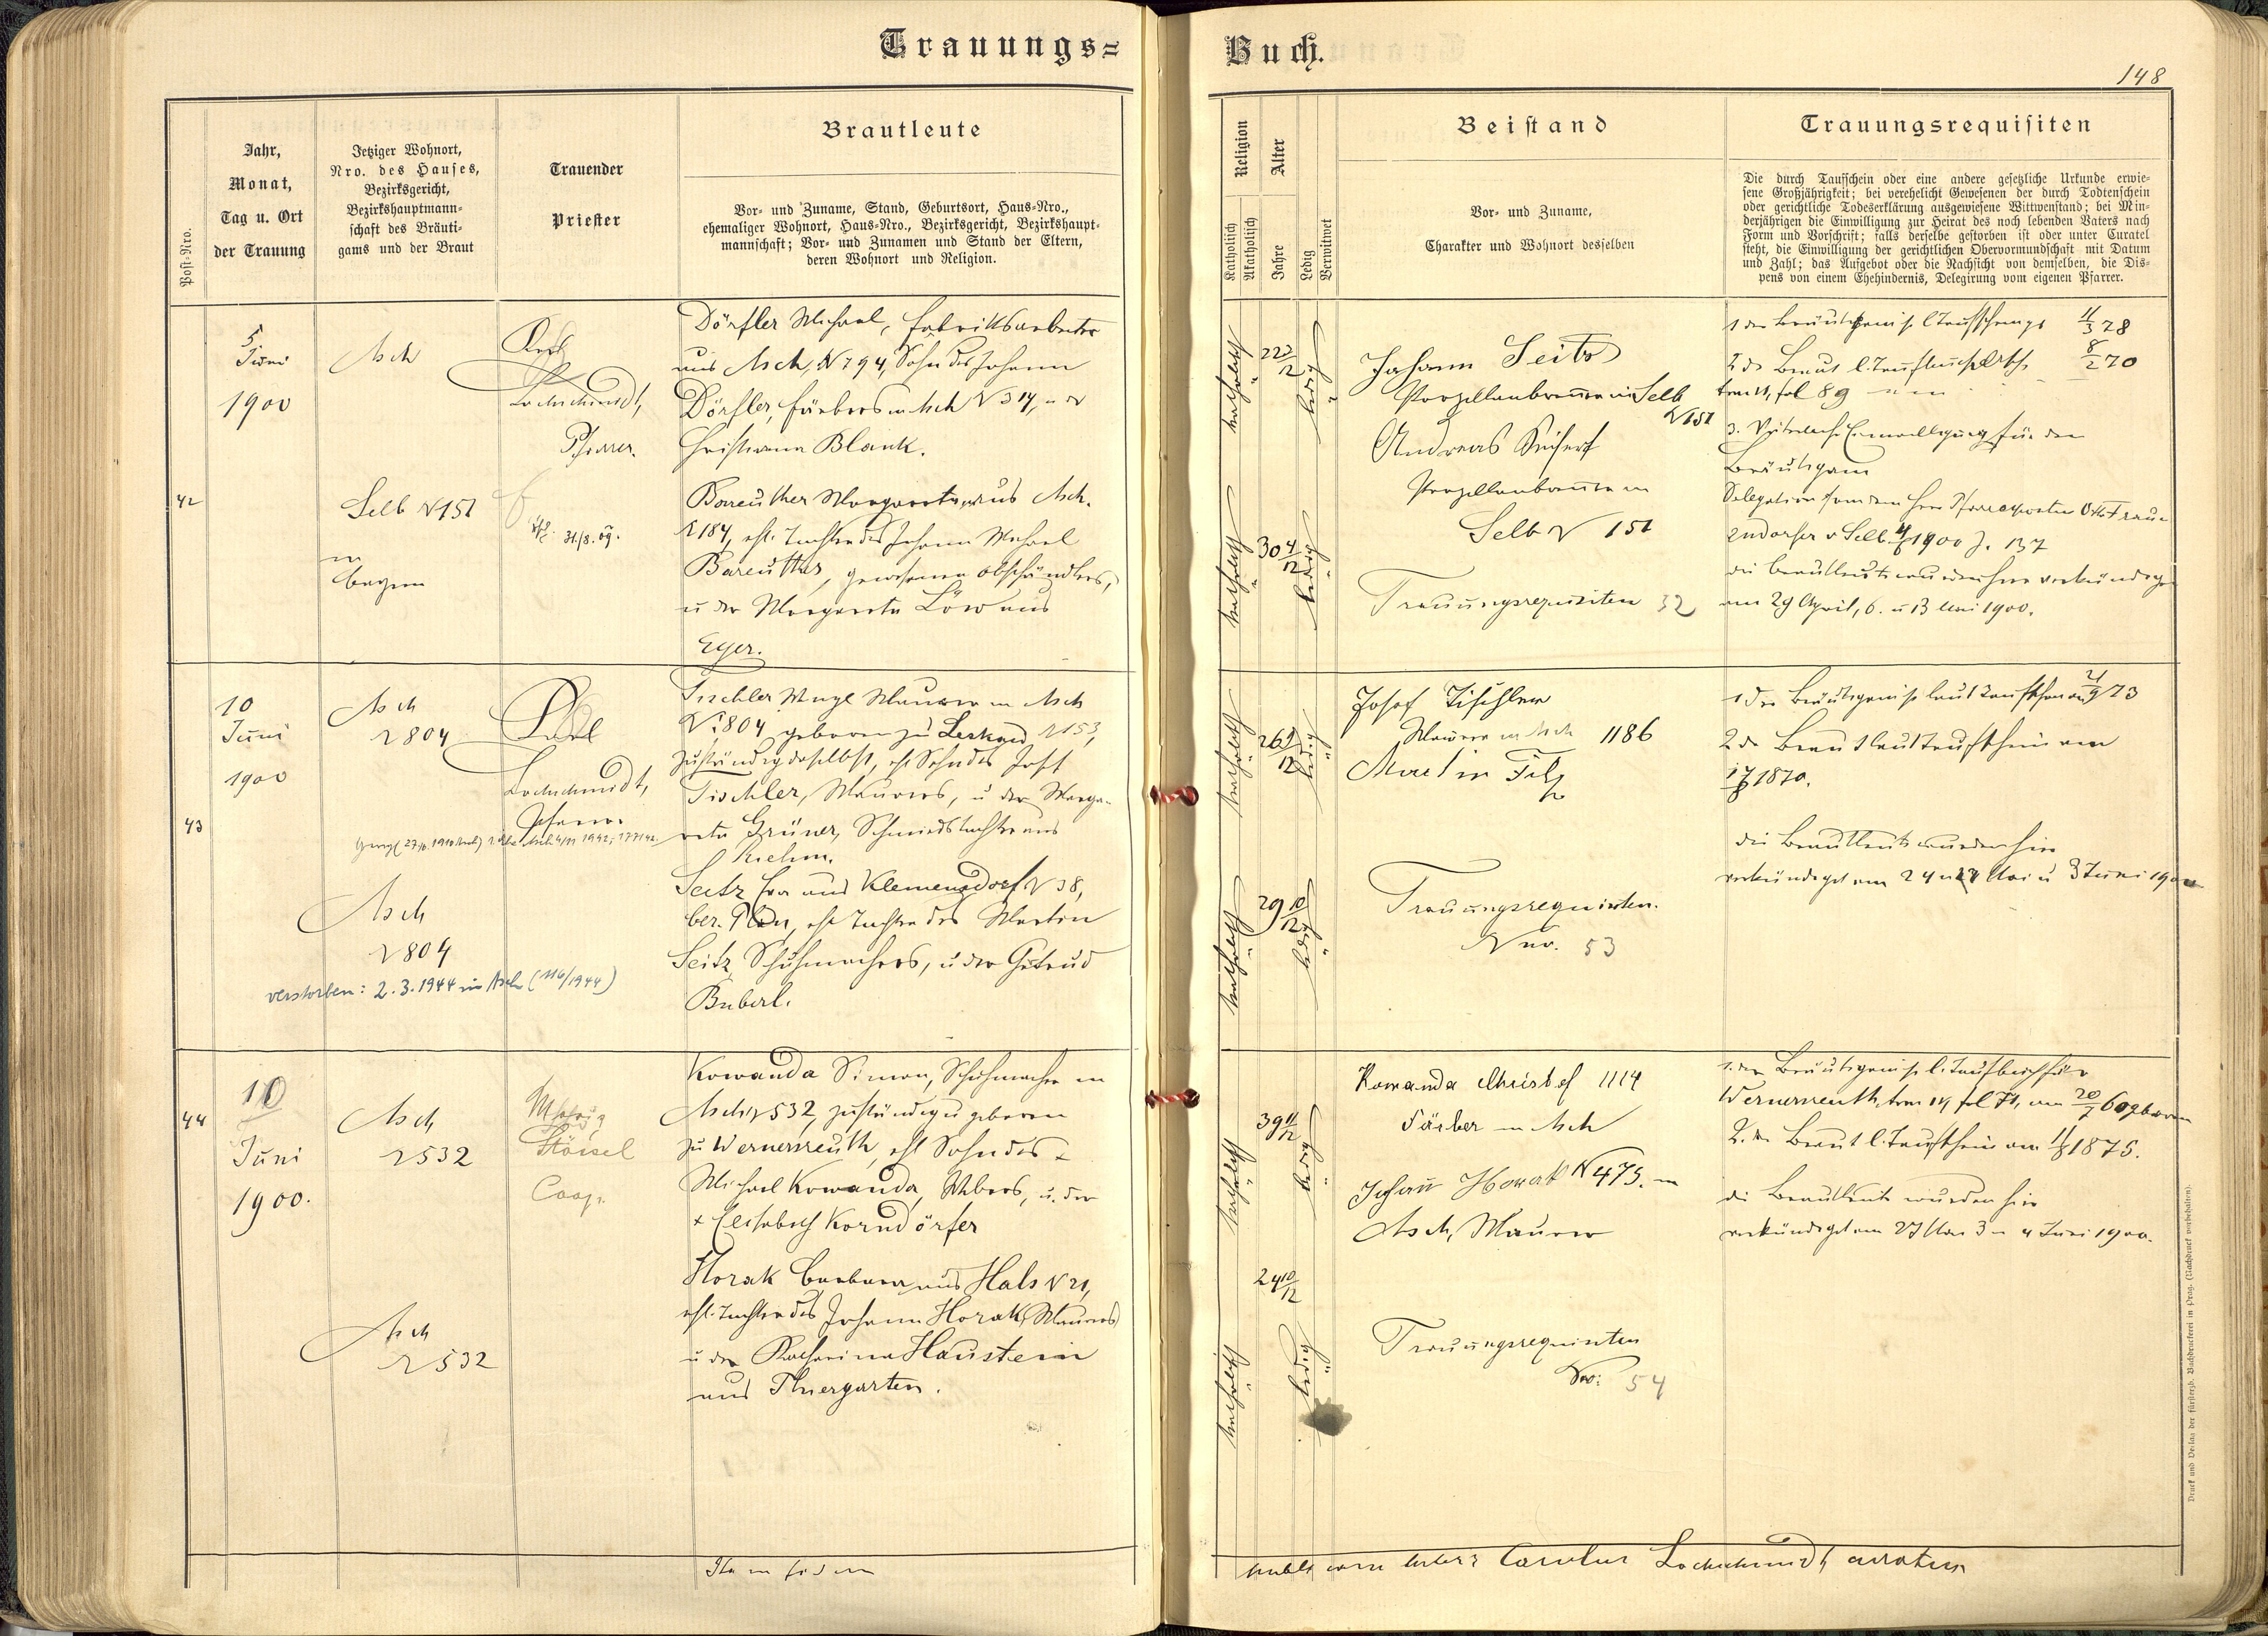 Trauungs=
Buch.
148
Post-Nro.
Jahr,
Monat,
Tag u. Ort
der Trauung
Jetziger Wohnort,
Nro. des Hauses,
Bezirksgericht,
Bezirkshauptmann-
schaft des Bräuti-
gams und der Braut
Trauender
Priester
Brautleute
Vor- und Zuname, Stand, Geburtsort, Haus-Nro.,
ehemaliger Wohnort, Haus-Nro., Bezirksgericht, Bezirkshaupt-
mannschaft; Vor- und Zunamen und Stand der Eltern,
deren Wohnort und Religion.
Religion
Katholisch
Akatholisch
Alter
Jahre
Ledig
Verwitwet
Beistand
Vor- und Zuname,
Charakter und Wohnort desselben
Trauungsrequisiten
Die durch Taufschein oder eine andere gesetzliche Urkunde erwie-
sene Großjährigkeit; bei verehelicht Gewesenen der durch Todtenschein
oder gerichtliche Todeserklärung ausgewiesene Wittwenstand; bei Min-
derjährigen die Einwilligung zur Heirat des noch lebenden Vaters nach
Form und Vorschrift; falls derselbe gestorben ist oder unter Curatel
steht, die Einwilligung der gerichtlichen Obervormundschaft mit Datum
und Zahl; das Aufgebot oder die Nachsicht von demselben, die Dis-
pens von einem Ehehindernis, Delegirung vom eigenen Pfarrer.
42
5.
Juni
1900
Asch
Selb N 151
in
Bayern
Karl
Lochschmidt,
Pfarrer.
31./8. 09.
Dörfler Michael, Fabriksarbeiter
aus Asch, N 794, Sohn des Johann
Dörfler, Färbers in Asch N 314, u der
Christiana Blank.
Bareuther Margareta aus Asch.
N 184, ehl. Tochter des Johann Michael
Bareuther, gewesenen Obsthändlers,
u der Margareta Löw aus
Eger.
katholisch
22 3/12
ledig
katholisch
30 4/12
ledig
Johann Seitz
Porzellanbrenner in Selb
N 151
Andreas Seifert
Porzellanbrenner in
Selb N 151
Trauungsrequisiten 32
1 der Bräutigam ist l. Taufschein 11/3 78
2 die Braut l. Taufbuch Asch 8/2 70
tom 11, fol 89
3. Väterliche Einwilligung für den
Bräutigam
Delegation von dem Herrn
v Selb 1900 Z. 137
die Brautleute wurden hier verkündiget
am 29 April, 6. u 13 Mai 1900.
43
10
Juni
1900
Asch
N 804
Asch
N 804
verstorben: 2.3.1944 in Asch (116/1944)
Karl
Lochschmidt,
Pfarrer
Tischler Wenzl Maurer in Asch
N. 804 geboren zu Leskau N 153,
zuständig daselbst, ehl Sohn des Josef
Tischler, Maurers, u der Marga-
reta Grüner, Schmiedstochter aus
Seitz Eva aus Klemensdorf N 38,
Bez. Plan, ehl Tochter des Martin
Seitz Schuhmachers, u der Gertrud
Buberl.
katholisch
26 9/12
ledig
katholisch
29 10/12
ledig
Josef Tischler
Maurer in Asch 1186
Martin Filz
Trauungsrequisiten.
Nro. 53
1 der Bräutigam ist laut Taufschein 21/9 73
2 die Braut laut Taufschein am
1870.
die Brautleute wurden hier
verkündiget am 24 u 27 Mai u 3 Juni 1900
44
10
Juni
1900.
Asch
N 532
Asch
N 532
Stöisel
Coop.
Kowanda Simon, Schuhmacher in
Asch N 532, zuständig u geboren
zu Wernersreuth, ehl Sohn des +
Michael Kowanda, Webers, u. der
+ Elisabeth Korndörfer
Horak Barbara aus Hals N 21,
ehl. Tochter des Johann Horak, Maurers
u der Katharina Haustein
aus Thiergarten.
katholisch
39 11/12
ledig
katholisch
24 10/12
ledig
Kowanda Christof 1114
Färber in Asch
Johann Horak N 475. in
Asch, Maurer
Trauungsrequisiten
Nro: 54
1. der Bräutigam ist l. Taufbuch für
Wernersreuth, tom 14, fol 71, am 20/7 60 geboren
2. die Braut l. Taufschein am 1875.
die Brautleute wurden hier
verkündiget am 27 Mai 3 u 4 Juni 1900.
Ita in fidem
Carolus Lochschmidt, curatus
Druck und Verlag der fürsterzb. Buchdruckerei in Prag. (Nachdruck vorbehalten).